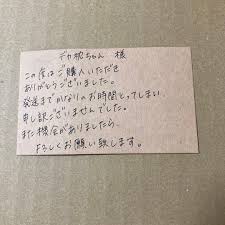 デカ枕ちゃん 様
この度はご購入いただき
ありがとうございました。
発送までかなりのお時間とってしまい、
申し訳ございませんでした。
また機会がありましたら、
よろしくお願い致します。